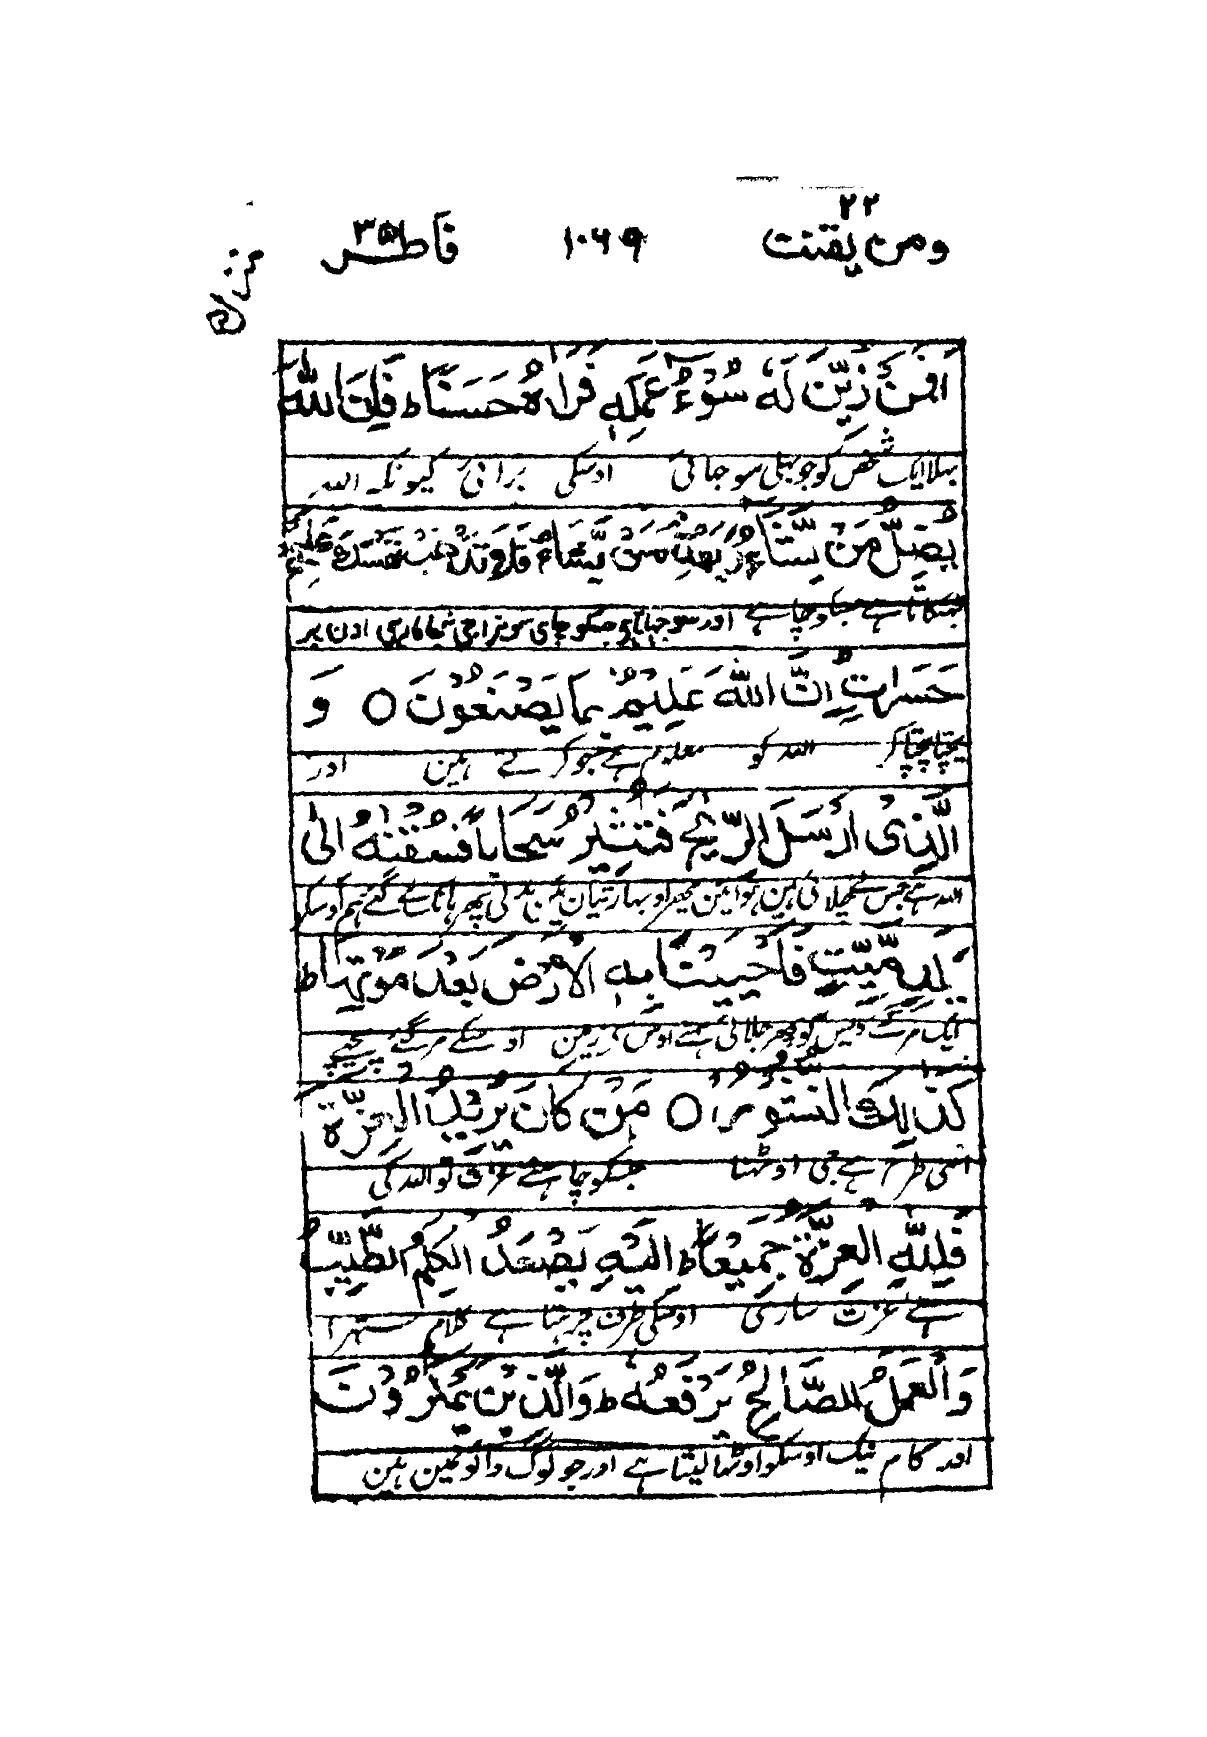 ومن یقنت ٢٢ ١٠٦٩ فاطر ٣٥
منزل
اَفَمَنْ زُیِّنَ لَهٗ سُوْٓءُ عَمَلِهٖ فَرَاٰهُ حَسَنًا ط فَاِنَّ اللّٰهَ
بہلا ایک شخص کو جو بہلی سوجائی اوسکی برائی کیونکہ اللہ
یُضِلُّ مَنْ یَّشَآءُ وَ یَهْدِیْ مَنْ یَّشَآءُ فَلَا تَذْهَبْ نَفْسُكَ عَلَیْهِمْ
بہٹکاتا ہے جسکو چاہے اور سوجہاتا ہے جسکو چاہی سو نہ اون پر
حَسَرٰتٍ اِنَّ اللّٰهَ عَلِیْمٌۢ بِمَا یَصْنَعُوْنَ ○ وَ
پچتا پچتا کر اللہ کو معلوم ہے جو کرتے ہین اور
الَّذِیْۤ اَرْسَلَ الرِّیٰحَ فَتُثِیْرُ سَحَابًا فَسُقْنٰهُ اِلٰی
اللہ ہے جس نے چلائی ہین ہوائین پہر
بَلَدٍ مَّیِّتٍ فَاَحْیَیْنَا بِهِ الْاَرْضَ بَعْدَ مَوْتِهَا ط
ایک مرگئے دیس کو پہر جلائی ہمنے اوس سے زمین اوسکے مرگئے پیچہے
كَذٰلِكَ النُّشُوْرُ ○ مَنْ كَانَ یُرِیْدُ الْعِزَّةَ
اسی طرح ہے جی اوٹہنا جسکو چاہئے عزت تو اللہ کی
فَلِلّٰهِ الْعِزَّةُ جَمِیْعًا ط اِلَیْهِ یَصْعَدُ الْكَلِمُ الطَّیِّبُ
ہے عزت ساری اوسکی طرف چڑہتا ہے کلام ستہرا
وَ الْعَمَلُ الصَّالِحُ یَرْفَعُهٗ ط وَ الَّذِیْنَ یَمْكُرُوْنَ
اور کام نیک اوسکو اوٹہا لیتا ہے اور جو لوگ داؤ مین ہین